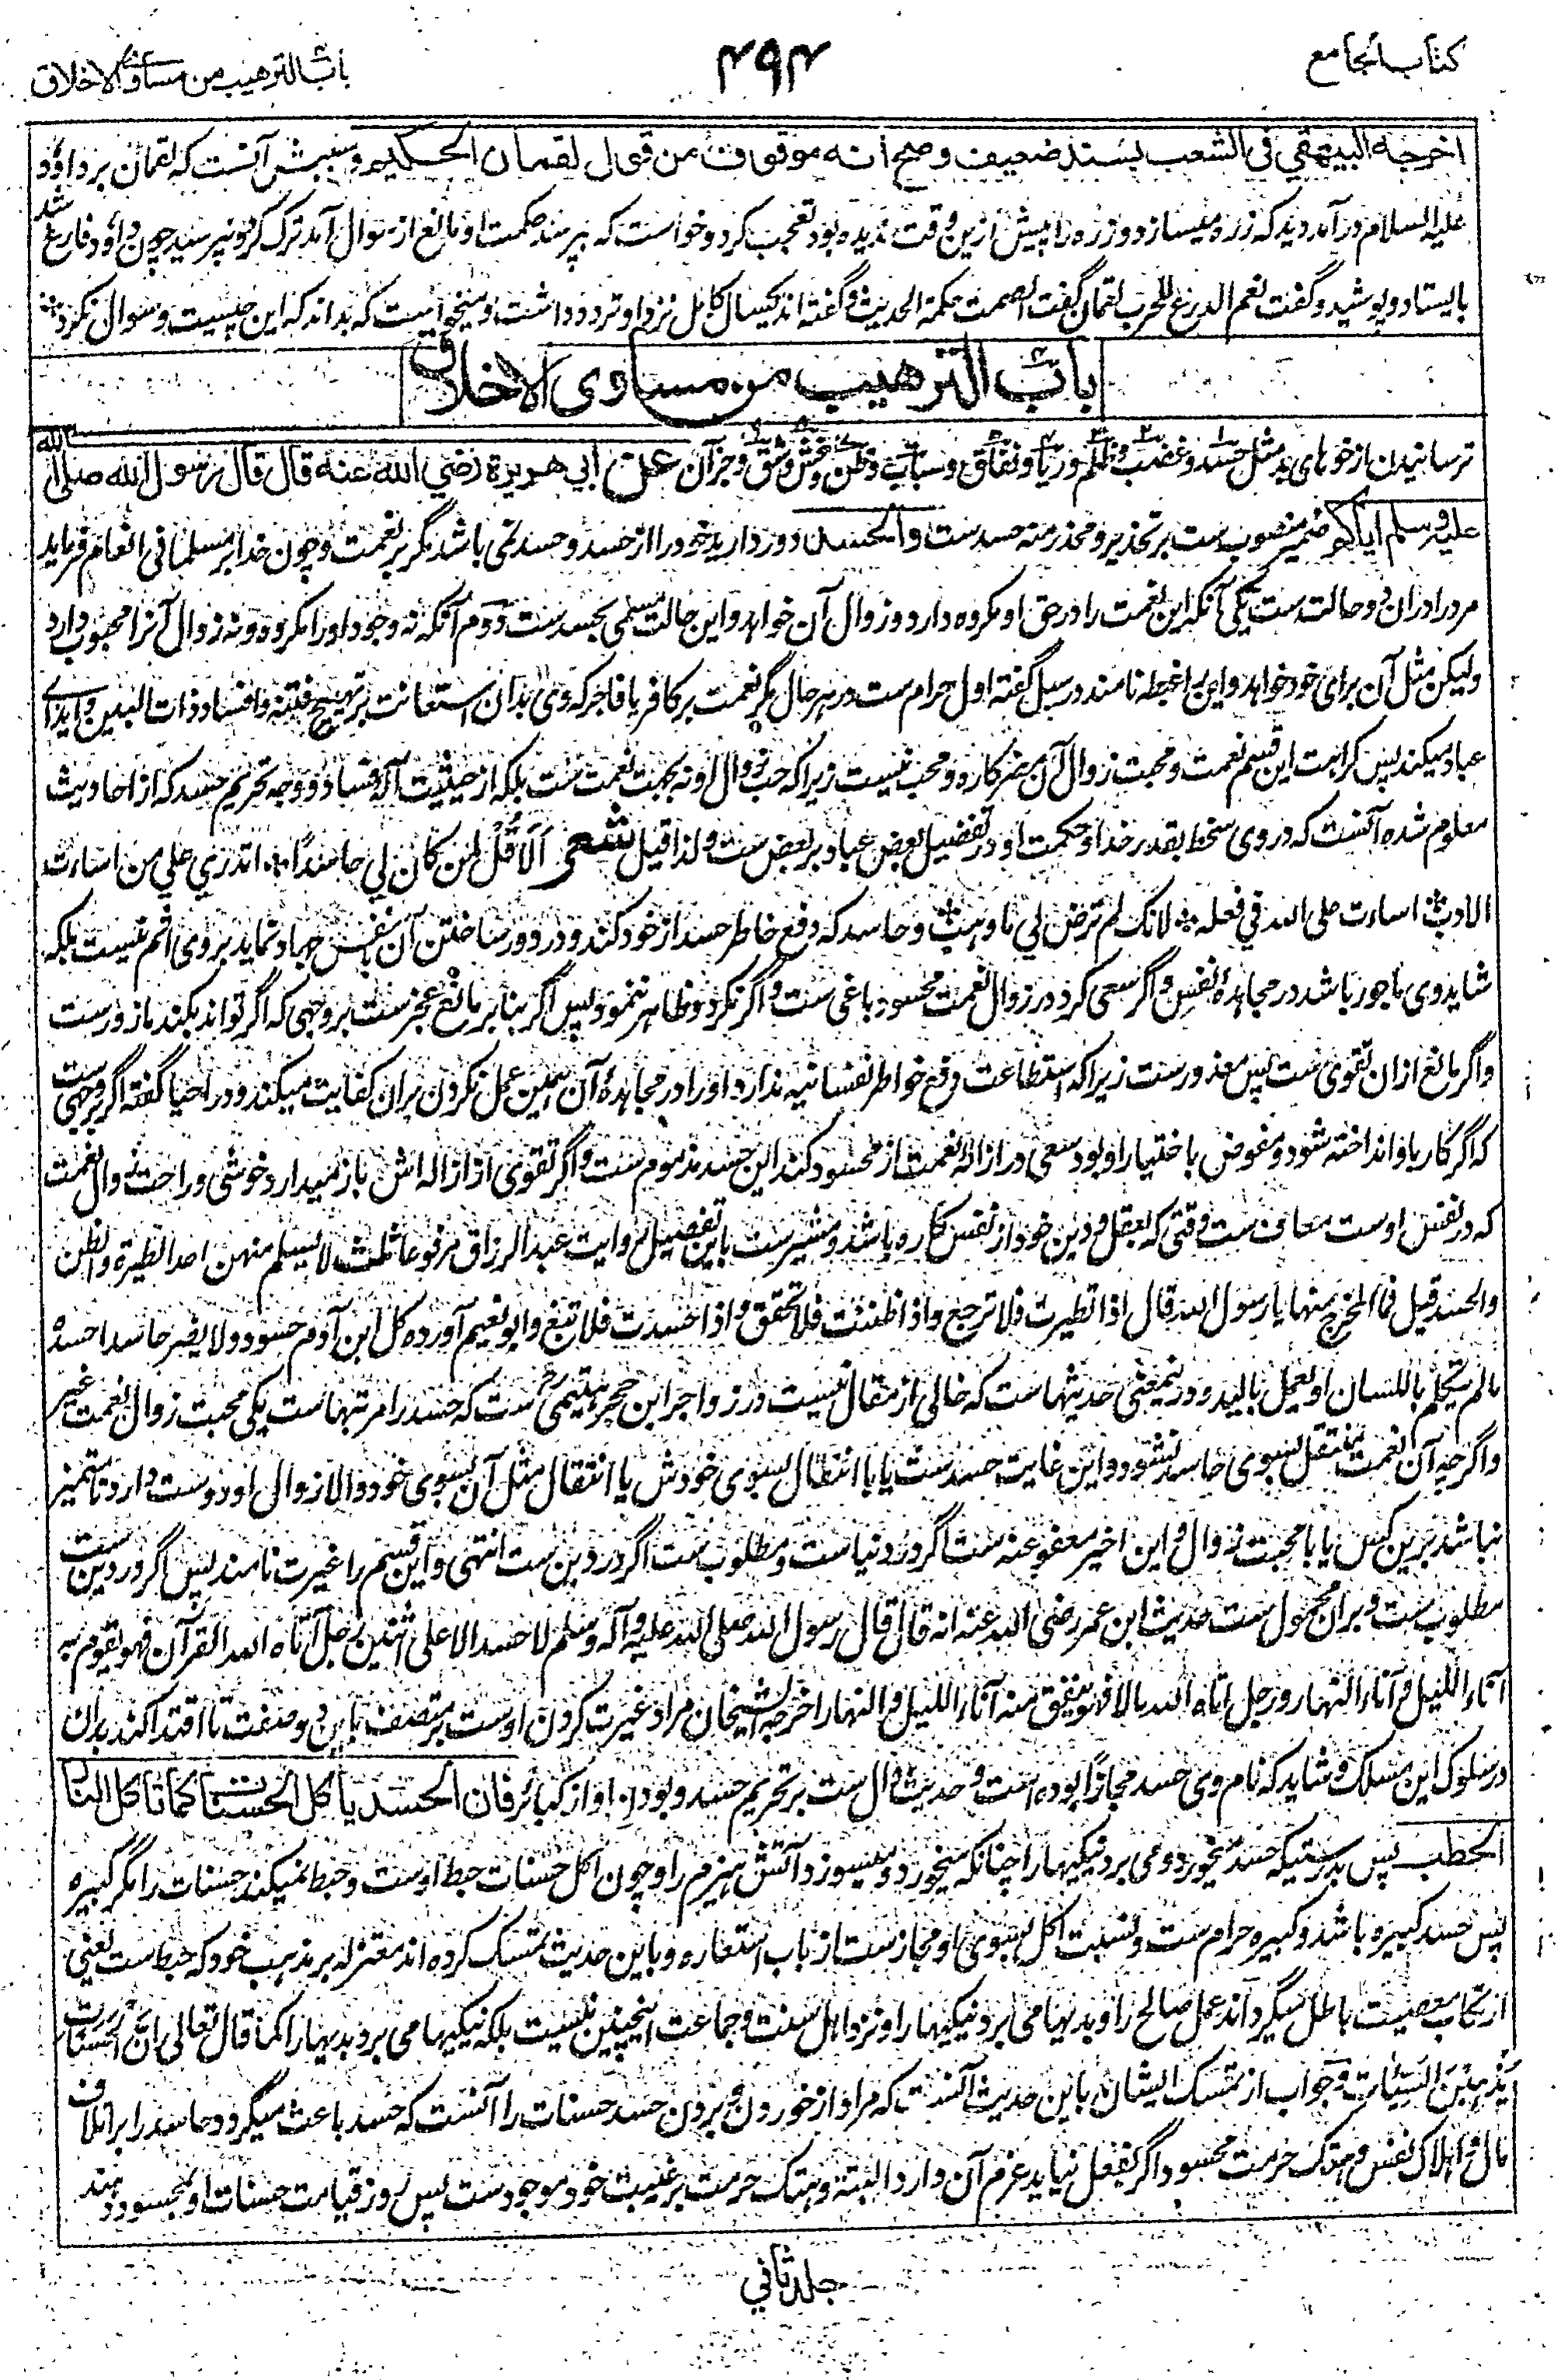 کتاب الجامع
۴۹۴
باب الترهیب من مساوی الاخلاق
اخرجه البیهقی فی الشعب بسند ضعیف وصح انه موقوف من قول لقمان الحکیم و سببش آنست که لقمان بر داود
علیه السلام در آمد دید که زره میسازد و زره را پیش ازین وقت ندیده بود تعجب کرد و خواست که بپرسد حکمت او مانع از سوال آمد ترک کرد و نپرسید چون داود فارغ شد
بایستاد و پوشید و گفت نعم الدرع للحرب لقمان گفت الصمت حکمة الحدیث و گفته اند یکسال کامل نزد او تردد داشت و میخواست که بداند که این چیست و سوال نکرد
باب الترهیب من مساوی الاخلاق
ترسانیدن از خوهای بد مثل حسد و غضب و ظلم و ریا و نفاق و سباب و ظن و فحش و شق و جز آن عن ابی هریرة رضی الله عنه قال قال رسول الله صلی الله
علیه وسلم ایاکم ضمیر منصوب ست بر تحذیر و محذر منه حسد ست والحسد دور دارید خود را از حسد و حسد نمی باشد مگر بر نعمت و چون خدا بر مسلمانی انعام فرماید
مردرا دران دو حالت ست یکی آنکه این نعمت را در حق او مکروه دارد و زوال آن خواهد و این حالت مسمی بحسد ست دوم آنکه نه وجود او را مکروه و نه زوال آنرا محبوب دارد
ولیکن مثل آن برای خود خواهد و این را غبطه نامند در سبل گفته اول حرام ست در هر حال مگر نعمت بر کافر یا فاجر که وی بدان استعانت بر تهییج فتنه و افساد ذات البین و ایذای
عباد میکند پس کراهت این قسم نعمت و محبت زوال آن مضر کاره و محب نیست زیرا که حب زوال او نه بجهت نعمت ست بلکه از حیثیت آله فساد و وجه تحریم حسد که از احادیث
معلوم شده آنست که در وی سخط بقدر خدا و حکمت او در تفضیل بعض عباد بر بعض ست و لذا قیل شعر الا قل لمن کان لی حاسدا ؛ اتدری علی من اسات
الادب ؛ اسات علی الله فی فعله ؛ لانک لم ترض لی ما وهب ؛ و حاسد که دفع خاطر حسد از خود کند و در دور ساختن آن بنفس جهاد نماید بر وی اثم نیست بلکه
شاید وی ماجور باشد در مجاهدۀ نفس و اگر سعی کرد در زوال نعمت محسود باغی ست و اگر نکرد و ظاهر ننمود پس اگر بنا بر مانع عجز ست بر وجهی که اگر تواند بکند مازور ست
و اگر مانع ازان تقوی ست پس معذور ست زیرا که استطاعت دفع خواطر نفسانیه ندارد او را در مجاهدۀ آن همین عمل نکردن بران کفایت میکند و در احیا گفته اگر بر وجهی ست
که اگر کار باو انداخته شود و مفوض باختیار او بود سعی در ازالۀ نعمت از محسود کند این حسد مذموم ست و اگر تقوی از ازاله اش باز میدارد خوشی و راحت زوال نعمت
که در نفس اوست معاف ست وقتی که بعقل و دین خود از نفس کاره باشد و مشیر ست باین تفصیل روایت عبد الرزاق مرفوعا ثلث لا یسلم منهن احد الطیرة والظن
والحسد قیل فما المخرج منها یا رسول الله قال اذا تطیرت فلا ترجع واذا ظننت فلا تحقق واذا حسدت فلا تبغ و ابو نعیم آورده کل ابن آدم حسود ولا یضر حاسدا حسده
ما لم یتکلم باللسان او یعمل بالید و در ینمعنی حدیثهاست که خالی از مقال نیست و در زواجر ابن حجر هیتمی ست که حسد را مرتبهاست یکی محبت زوال نعمت غیر
و اگرچه آن نعمت منتقل بسوی حاسد نشود و این غایت حسد ست یا با انتقال بسوی خودش یا انتقال مثل آن بسوی خود و الا زوالی او دوست دارد تا متمیز
نباشد برین کس یا با محبت زوال و این اخیر معفو عنه ست اگر در دنیاست و مطلوب ست اگر در دین ست انتهی و این قسم را غیرت نامند پس اگر در دین ست
مطلوب ست و بران محمول ست حدیث ابن عمر رضی الله عنه انه قال قال رسول الله صلی الله علیه وآله وسلم لا حسد الا علی اثنین رجل آتاه الله القرآن فهو یقوم به
آناء اللیل وآناء النهار ورجل اتاه الله مالا فهو ینفق منه آناء اللیل والنهار اخرجه الشیخان مراد غیرت کردن اوست بر متصف باین دو صفت تا اقتدا کند بدان
در سلوک این مسلک و شاید که نام وی حسد مجازا بوده است و حدیث دال ست بر تحریم حسد و بودن او از کبائر فان الحسد یاکل الحسنات کما تاکل النار
الحطب پس بدرستیکه حسد میخورد و می برد نیکیها را چنانکه میخورد و میسوزد آتش هیزم را و چون اکل حسنات حبط اوست و حبط نمیکند حسنات را مگر کبیره
پس حسد کبیره باشد و کبیره حرام ست و نسبت اکل بسوی او مجاز ست از باب استعاره و باین حدیث تمسک کرده اند معتزله بر مذهب خود که حبط است یعنی
ارتکاب معصیت باطل میگرداند عمل صالح را و بدیها می برد نیکیها را و نزد اهل سنت و جماعت اینچنین نیست بلکه نیکیها می برد بدیها را کما قال تعالی ان الحسنات
یذهبن السیئات و جواب از تمسک ایشان باین حدیث آنست که مراد از خوردن و بردن حسد حسنات را آنست که حسد باعث میگردد حاسد را بر اتلاف
مال و اهلاک نفس و هتک حرمت محسود و اگر بفعل نیاید عزم آن دارد البته و هتک حرمت بر غیبت خود موجود ست پس روز قیامت حسنات او بمحسود دهند
جلد ثانی